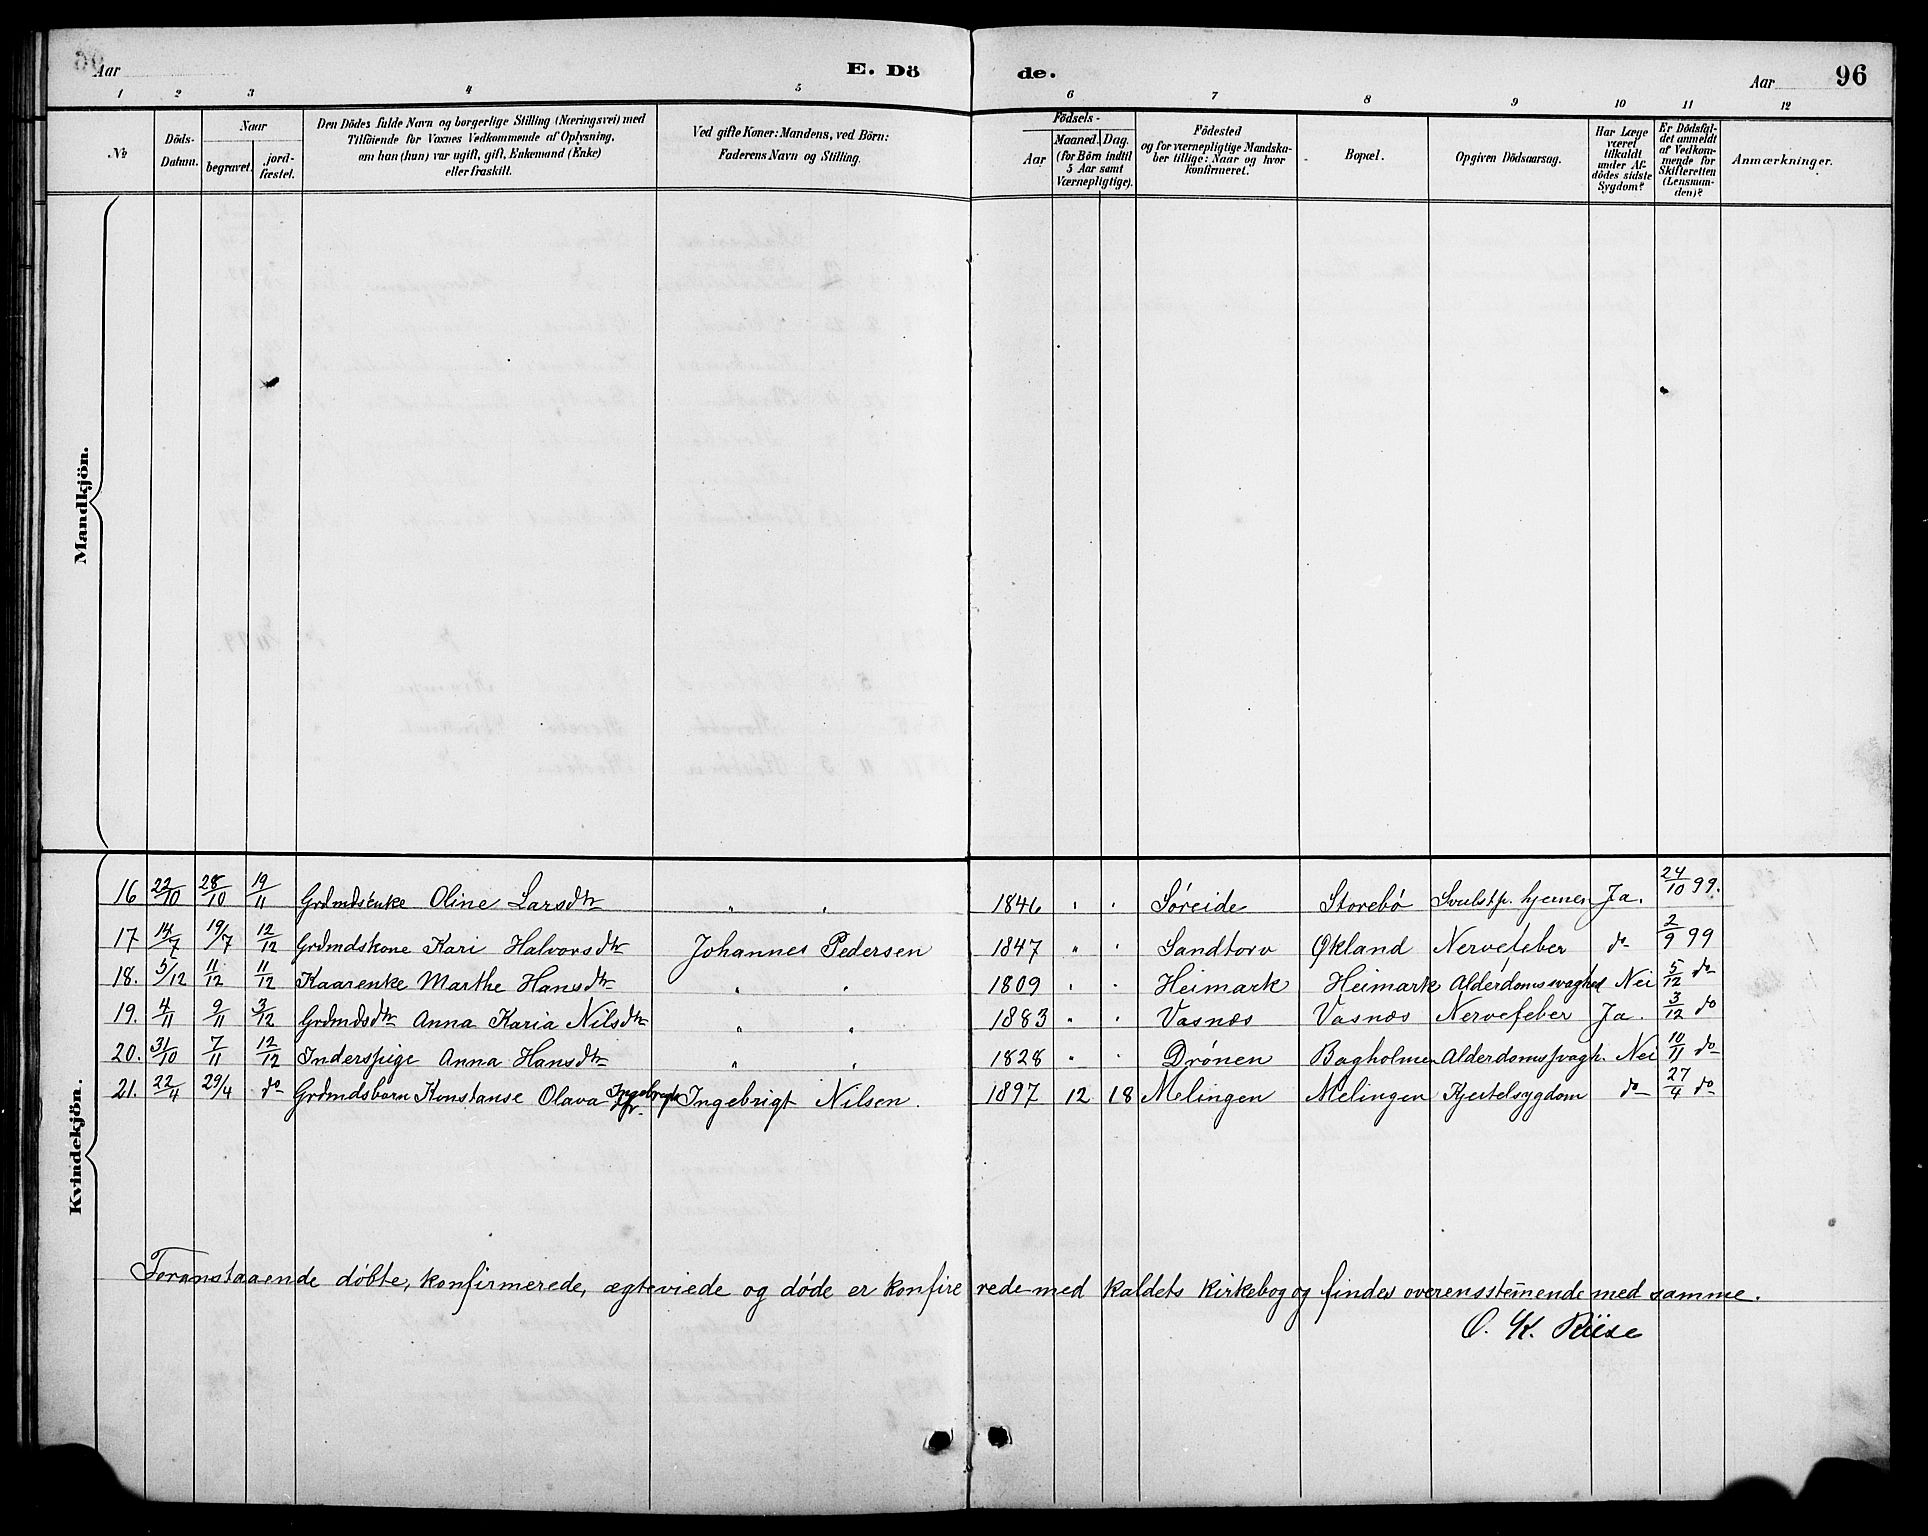 Aar E. Dö de. Aar 96
1 2 3 4 5 6 7 8 9 10 11 12
№
Döds-Datum.
Naar
begravet.
jord-fæstet.
Den Dödes fulde Navn og borgerlige Stilling (Næringsvei) med
Tilföiende for Voxnes Vedkommende af Oplysning,
om han (hun) var ugift, gift, Enkemand (Enke)
eller fraskilt.
Ved gifte Koner: Mandens, ved Börn:
Faderens Navn og Stilling.
Födsels-
Aar
Maaned. Dag.
(for Börn indtil
5 Aar samt
Værnepligtige).
Födested
og for værnepligtige Mandska-
ber tillige: Naar og hvor
konfirmeret.
Bopæl.
Opgiven Dödsaarsag.
Har Læge
været
tilkaldt
under Af-
dödes sidste
Sygdom?
Er Dödsfal-
det anmeldt
af Vedkom-
mende for
Skifteretten
(Lensman-
den)?
Anmærkninger.
Mandkjön.
Kvindekjön.
16 22/10 28/10 19/11 Grdmdsenke Oline Larsdtr " " 1846 " " Söreide Storebö Svulst p. hjernen Ja. 24/10 99.
17 14/7 19/7 12/12 Grdmdskone Kari Halvorsdtr Johannes Pedersen 1847 " " Sandtorv Økland Nervefeber do 2/9 99
18. 5/12 11/12 11/12 Kaarenke Marthe Hansdtr " " 1809 " " Heimark Heimark Alderdomssvaghed Nei 5/12 do
19. 4/11 9/11 3/12 Grdmdsdtr Anna Karia Nilsdtr " " 1883 " " Vasnæs Vasnæs Nervefeber Ja. 3/12 do
20. 31/10 7/11 12/12 Inderspige Anna Hansdtr " " 1828 " " Drönen Bagholmen Alderdomssvagh. Nei 10/11 do
21. 22/4 29/4 do Grdmdsbarn Konstanse Olava Ingebrigtsdtr. Ingebrigt Nilsen. 1897 12 18 Melingen Melingen Kjertelsygdom do 27/4 do
Foranstaaende döbte, konfirmerede, ægteviede og döde er konfire rede med kaldets kirkebog og findes overensstemende med samme.
O. K. Riise